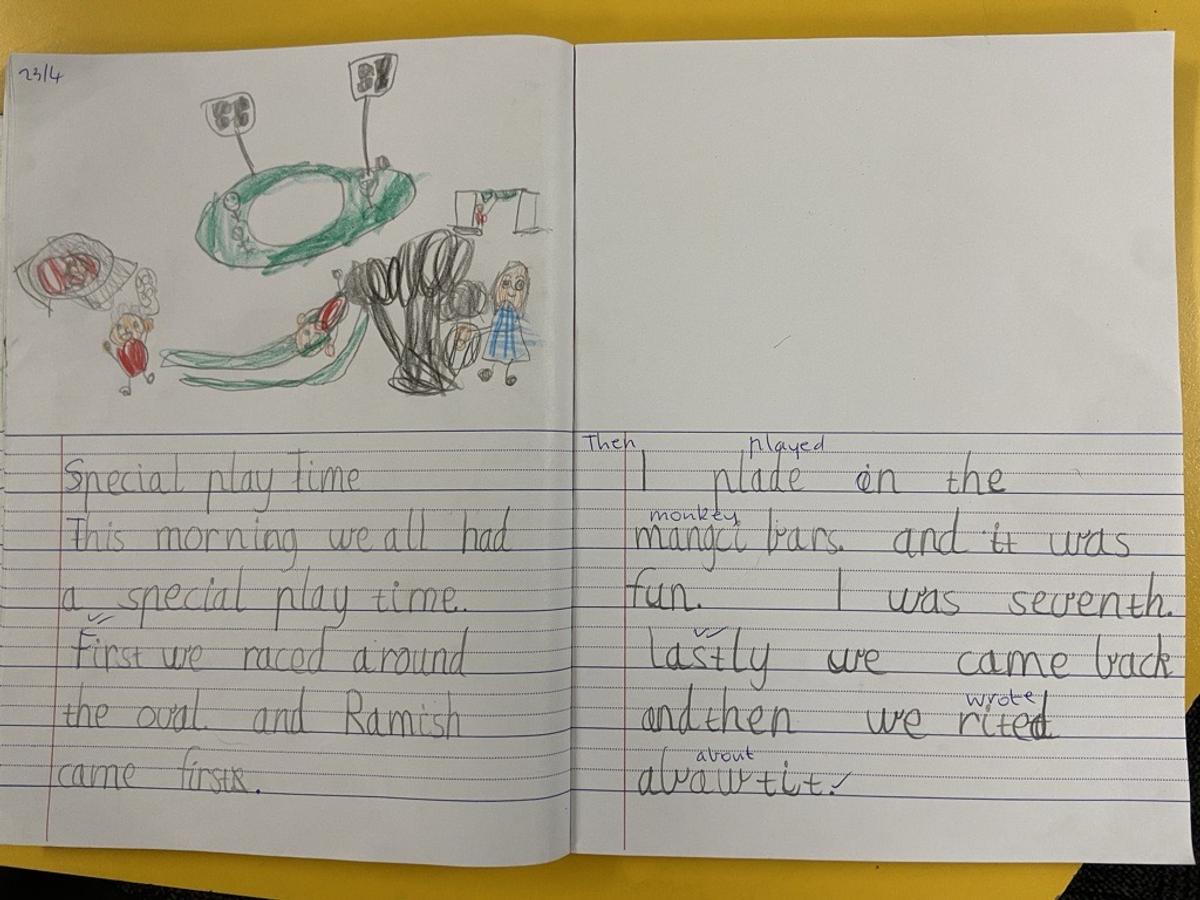 23/4
Special play Time
This morning we all had
a special play time.
First we raced around
the oval and Ramish
came first.
Then played
I plade in the
monkey
mangci bars. and it was
fun. I was seventh.
lastly we came back
wrote
and then we rited
about
abawt it.